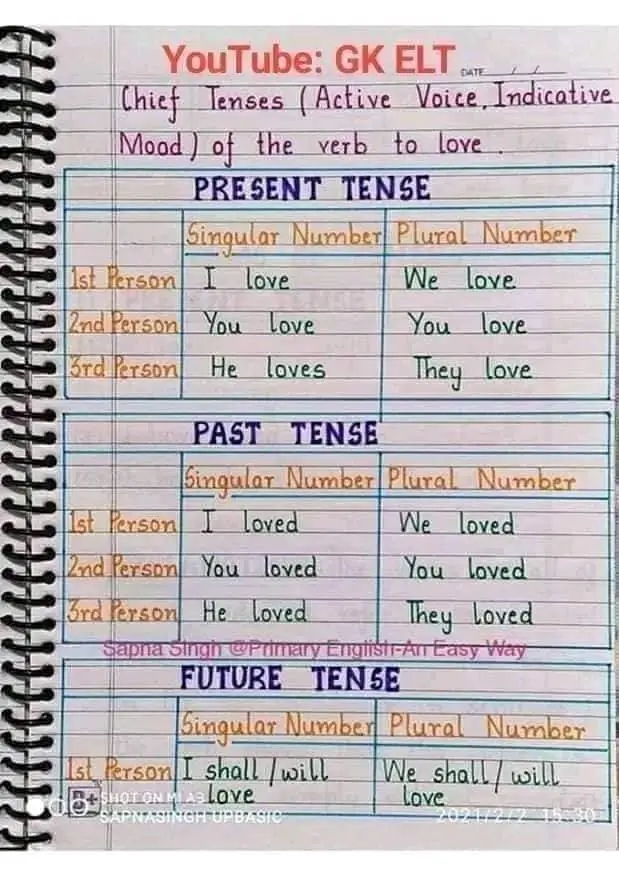 YouTube: GK ELT
DATE
Chief Tenses (Active Voice, Indicative
Mood) of the verb to love.
PRESENT TENSE
Singular Number Plural Number
1st Person I love We love
2nd Person You love You love
3rd Person He loves They love
PAST TENSE
Singular Number Plural Number
1st Person I loved We loved
2nd Person You loved You loved
3rd Person He loved They loved
Sapna Singh @Primary English-An Easy Way
FUTURE TENSE
Singular Number Plural Number
1st Person I shall/will We shall/will
love love
SHOT ON MI A3
SAPNASINGH UPBASIC
2021/2/2 15:30